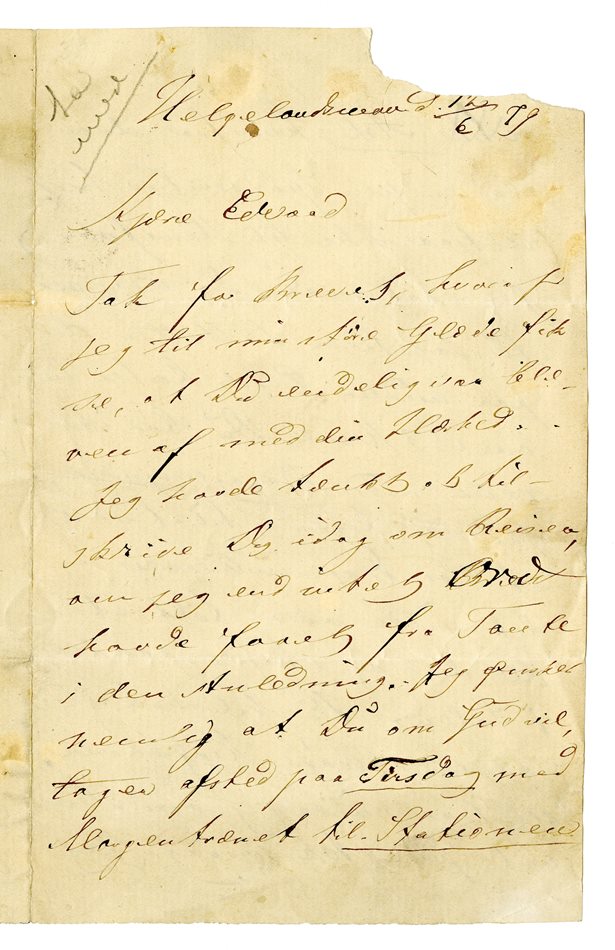 ta
med
Helgelandsmoen d. 12/6 79
Kjære Edvard
Tak for Brevet, hvoraf
jeg til min store Glæde fik
se, at Du endelig var ble-
ven af med din Hæshed.
Jeg havde tænkt at til-
skrive Dig idag om Reisen,
om jeg end intet Brev
havde faaet fra Tante
i den Anledning. Jeg ønsker
nemlig at Du om Gud vil,
tager afsted paa Tirsdag med
Morgentrænet til Stationen